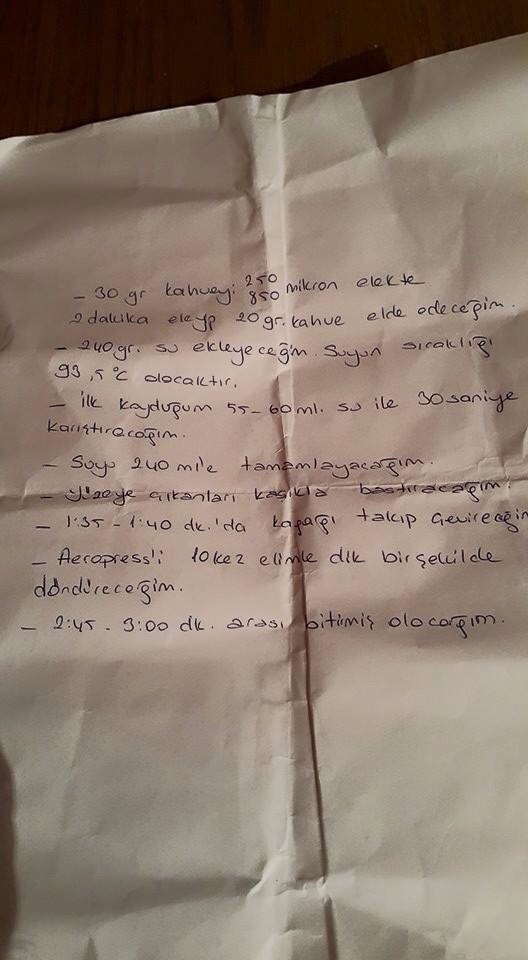 - 30 gr kahveyi 250 850 mikron elekte
2 dakika eleyp 20 gr. kahve elde edeceğim.
- 240 gr. su ekleyeceğim. Suyun sıcaklığı
93,5 °C olacaktır.
- İlk koyduğum 55-60 ml. su ile 30 saniye
karıştıracağım.
- Suyu 240 ml'e tamamlayacağım.
- Yüzeye çıkanları kaşıkla bastıracağım.
- 1:35 - 1:40 dk.'da kapağı takıp çevireceğim
- Aeropress'i 10 kez elimle dik bir şekilde
döndüreceğim.
- 2:45 - 3:00 dk. arası bitirmiş olacağım.